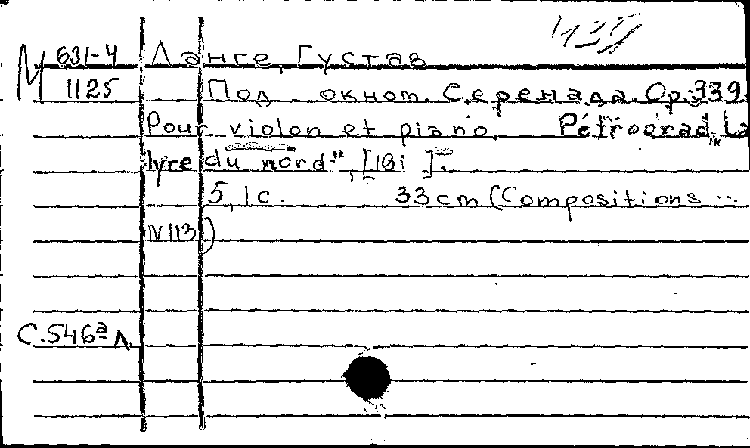 М 631-4 Ланге, Густав
1125 Под окном. Серенада. Ор. 339.
Pour violon et piano. Petrograd, "La
lyre du nord", [191 ].
5, 1 с. 33 cm (Compositions ...
N 113)
С.546а л.